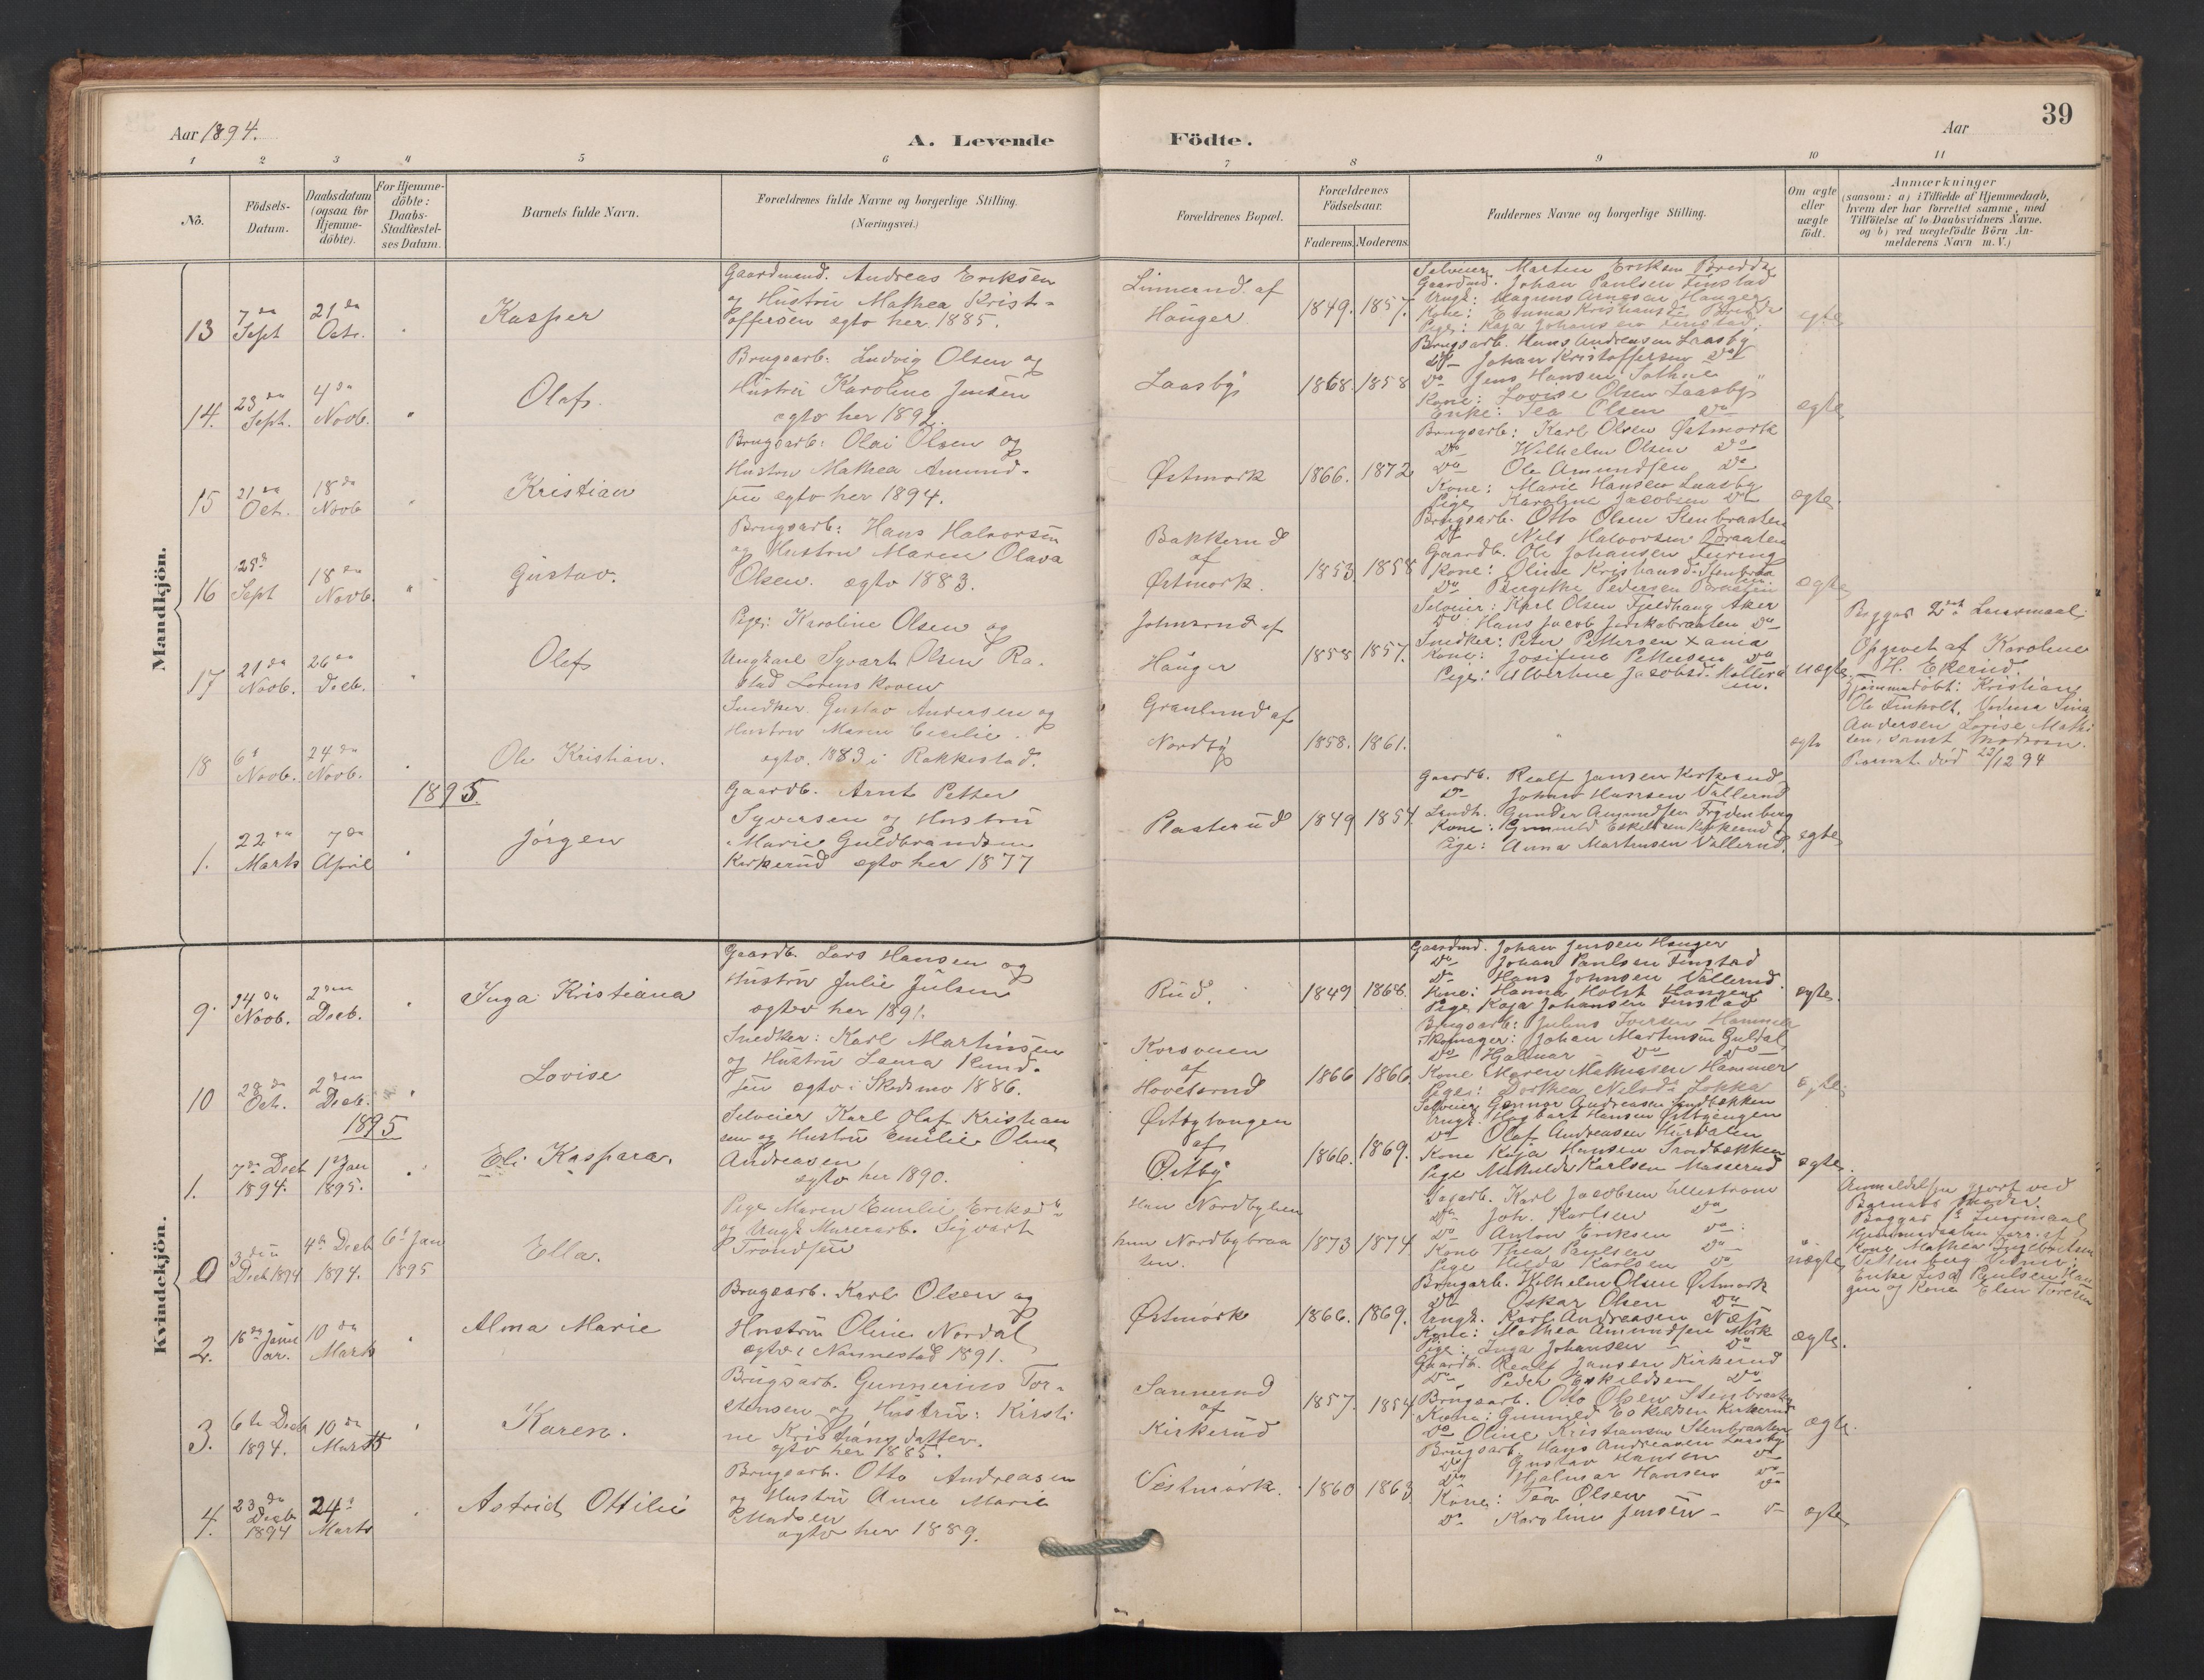 Aar 1894.
A. Levende
Födte.
Aar
39
1 2 3 4 5 6 7 8 9 10 11
No.
Födsels-
Datum.
Daabsdatum
(ogsaa for
Hjemme-
döbte).
For Hjemme-
döbte:
Daabs-
Stadfæstel-
ses Datum.
Barnets fulde Navn.
Forældrenes fulde Navne og borgerlige Stilling.
(Næringsvei.)
Forældrenes Bopæl.
Forældrenes
Födselsaar.
Faderens. Moderens.
Faddernes Navne og borgerlige Stilling.
Om ægte
eller
uægte
födt.
Anmærkninger
(saasom: a) i Tilfælde af Hjemmedaab,
hvem der har forrettet samme, med
Tilföielse af to Daabsvidners Navne,
og b) ved uægtefödte Börn An-
melderens Navn m.V.)
Mandkjön.
13
7de
Sept
21de
Octr.
Kasper
Gaardmand. Andreas Eriksen
og Hustru Mathea Krist-
offersen egtv her 1885.
Linnerud af
Hauger
1849. 1857.
Selveier. Martin Eriksen Bredde
Gaardmd. Johan Paulsen Finstad
Ungk: Magnus Hauger
Kone: Emma
Pige: Kaja Johansen Finstad.
egte
14.
23de
Sept.
4de
Novb.
Olaf.
Brugsarb. Ludvig Olsen og
Hustru Karoline Jensen
egtv her 1892.
Laasby
1868. 1858
Brugsarb. Hans Andreasen Laasby
Do Johan Kristoffersen Do
Do Jens Hansen
Kone: Lovise Olsen Laasby
Enke: Tea Olsen Do
egte
15
21de
Oct.
18de
Novb
Kristian
Brugsarb: Olai Olsen og
Hustru Mathea Amund-
sen egtv her 1894.
Østmork
1866. 1872
Brugsarb: Karl Olsen Østmork
Do Wilhelm Olsen Do
Do Ole Amundsen Do
Kone: Marie Hansen Laasby
Pige Karoline Jacobsen Do
egte.
16
25de
Sept
18de
Novb.
Gustav.
Brugsarb: Hans Halvorsen
og Hustru Maren Olava
Olsen. egtv 1883.
Bakkerud
af
Østmork.
1853 1858
Brugsarb. Otto Olsen Stenbraaten
Do Nils Halvorsen Braaten
Gaardb. Ole Johansen
Kone: Oline Kristiansd. Stenbraa
ten.
Do Pedersen
egte
17
21de
Novb.
26de
Decb.
Olaf
Pige: Karoline Olsen og
Ungkarl Syvart Olsen Ra-
stad Lorenskoven
Johnsrud af
Hauger
1858 1857.
Selveier: Karl Olsen Fjeldhaug Aker
Do Hans Jacob Do
Snedker: Peter Pettersen Xania
Kone: Josefine Pettersen Do
Pige: Albertine Jacobsd.
uegte
Begges 2det Leiermaal.
Opgivet af Karoline
H. Ekerud.
18
6te
Novb.
24de
Novb.
Ole Kristian.
Snedker. Gustav Andersen og
Hustru Maren Cecilie.
egtv. 1883 i Rakkestad.
Granlund af
Nordby
1858. 1861.
"
egte
Hjemmedöbt: Kristian
Ole Finholt. Vidner Sina
Andersen Lovise Mathi
sen, samt Moderen.
Barnet död 22/12 94
1895.
1.
22de
Marts
7de
April
Jörgen
Gaardb. Arnt Petter
Syversen og Hustru
Marie Guldbrandsen
Kirkerud egtv her 1877
Plasterud
1849 1854.
Gaardb. Realf Jansen Kirkerud
Do Johan Hansen Vallerud
Landh. Gunder Amundsen Frydenberg
Kone: Gunnild Eskildsen Kirkerud
Pige: Anna Martinsen Vallerud.
egte
Kvindekjön.
9.
24de
Novb.
2den
Decb.
Inga Kristiana
Gaardb. Lars Hansen og
Hustru Julie Julsen
egtev her 1891.
Rud.
1849 1868.
Gaardmd. Johan Jensen Hauger
Do Johan Paulsen Finstad
Do Hans Johnsen Vallerud.
Kone: Hanna Holst Haugen
Pige Kaja Johansen Finstad
egte.
10
28de
Oct.
2den
Decb.
Lovise
Snedker: Karl Martinsen
og Hustru Laura Knud-
sen egtv i Skedsmo 1886.
Korsveien
af
Hovelsrud
1866 1866
Brugsarb: Julius Iversen Hammer
Skomager: Johan Martinsen Guldal
Do Hjalmar Do Do
Kone Maren Mathiasen Hammer
Pige: Dorthea Nilsd. Løkka
egte
1895
1.
7de Decb
1894.
1ste Jan
1895.
Eli Kaspara.
Selveier Karl Olaf Kristian
sen og Hustru Emilie Oline
Andreasen
egtv her 1890.
Østbyvangen
af
Østby
1866. 1869.
Selveier Gunnar Andreasen Sandbækken
Ungk. Hagbart Hansen Østbyengen
Do Olaf Andreasen Hurdalen
Kone Kaja Hansen Sandbækken
Pige Mathilde Karlsen Masserud
egte.
0
3die
Decb 1894
4de Decb
1894.
6te Jan
1895
Ella.
Pige Maren Emilie Eriksdtr
og Ungk. Murerarb. Sigvart
Trondsen
Han Nordbyhen
hun Nordbybraa
ten.
1873 1874
Sagarb. Karl Jacobsen Lillestrøm
Do Joh. Karlsen Do
Do Anton Eriksen Do
Kone Thea Paulsen Do
Pige Hilda Karlsen Do
uegte
Anmeldelsen gjort ved
Barnets Moder.
Begges 1ste Leiermaal
Hjemmedaaben forr. af
Kone Mathea Ingebretsen
Vittenberg Vidner:
Enke Lisa Paulsen Hau
gen og Kone Elen Toresen
2.
16de Janu
ar.
10de
Marts
Alma Marie
Brugsarb. Karl Olsen og
Hustru Oline Nordal
egtv i Nannestad 1891.
Østmörk
1866. 1869.
Brugarb. Wilhelm Olsen Østmork
Do Oskar Olsen Do
Ungk. Karl Andreasen Næss
Kone: Mathea Amundsen Mork
Pige: Inga Johansen Do
ægte.
3.
6te Decb
1894.
10de
Marts
Karen.
Brugsarb. Gunnerius Tor-
stensen og Hustru: Kirsti
ne Kristiansdatter.
egtv her 1885.
Sannerud
af
Kirkerud
1857. 1854
Gaardb. Realf Jansen Kirkerud
Do Peder Eskildsen Do
Brugsarb. Otto Olsen Stenbraaten
Kone: Gunnild Eskildsen Kirkerud
Do Oline Kristiansen Stenbraaten
ægte.
4.
23de
Decb
1894
24de
Marts
Astrid Ottilie
Brugsarb. Otto Andreasen
og Hustru Anne Marie
Madsen
egtv her 1889.
Vestmörk.
1860 1863
Brugsarb. Hans Andreasen Laasby
Do Gustav Hansen Do
Do Hjalmar Hansen Do
Kone: Tea Olsen Do
Do Karoline Jensen Do
egte